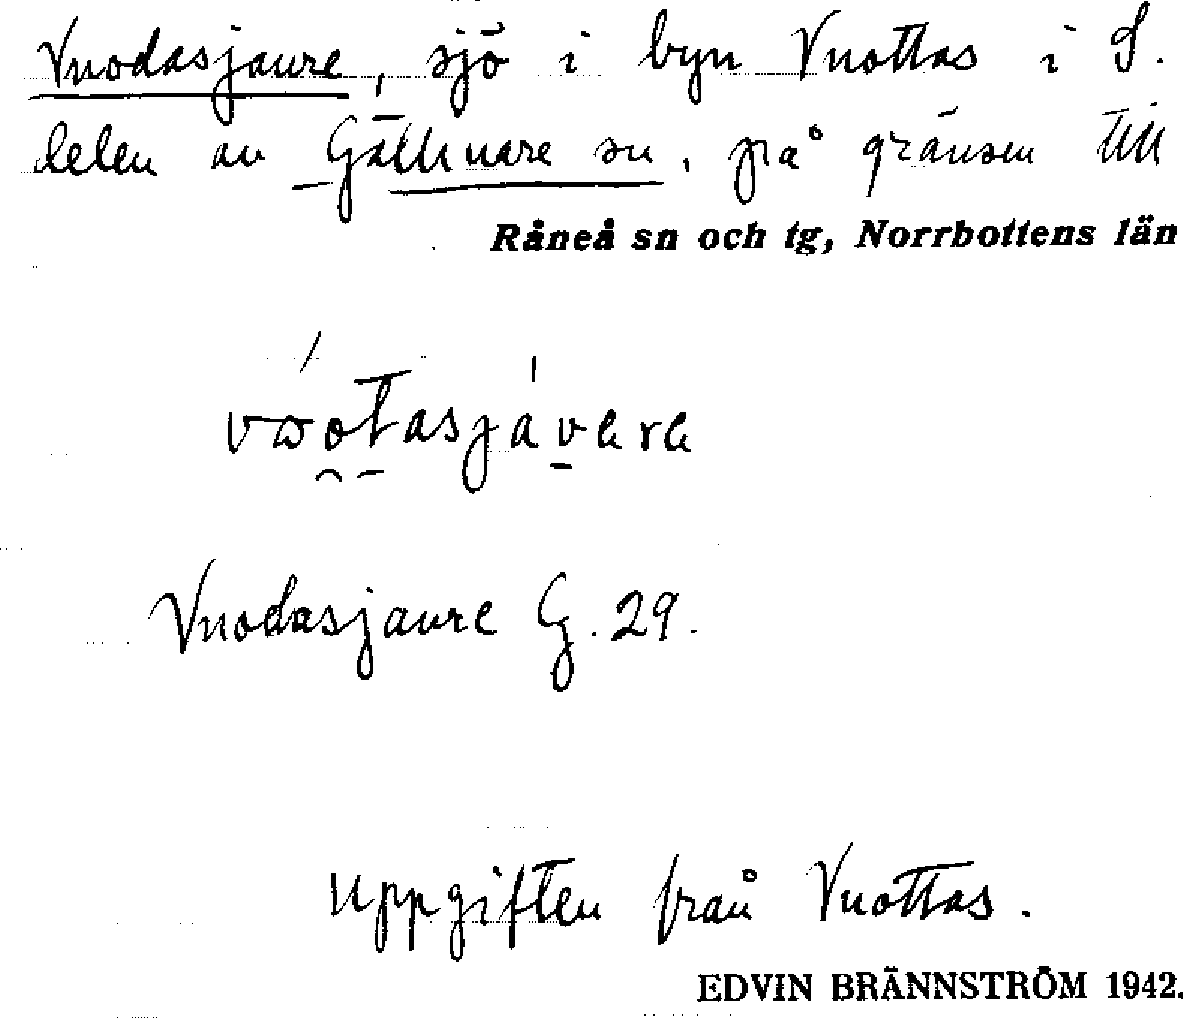 Vuodasjaure, sjö i byn Vuottas i S.
delen av Gällivare sn, på gränsen till
Råneå sn och tg, Norrbottens län
Vuodasjaure G. 29.
Uppgiften från Vuottas.
EDVIN BRÄNNSTRÖM 1942.